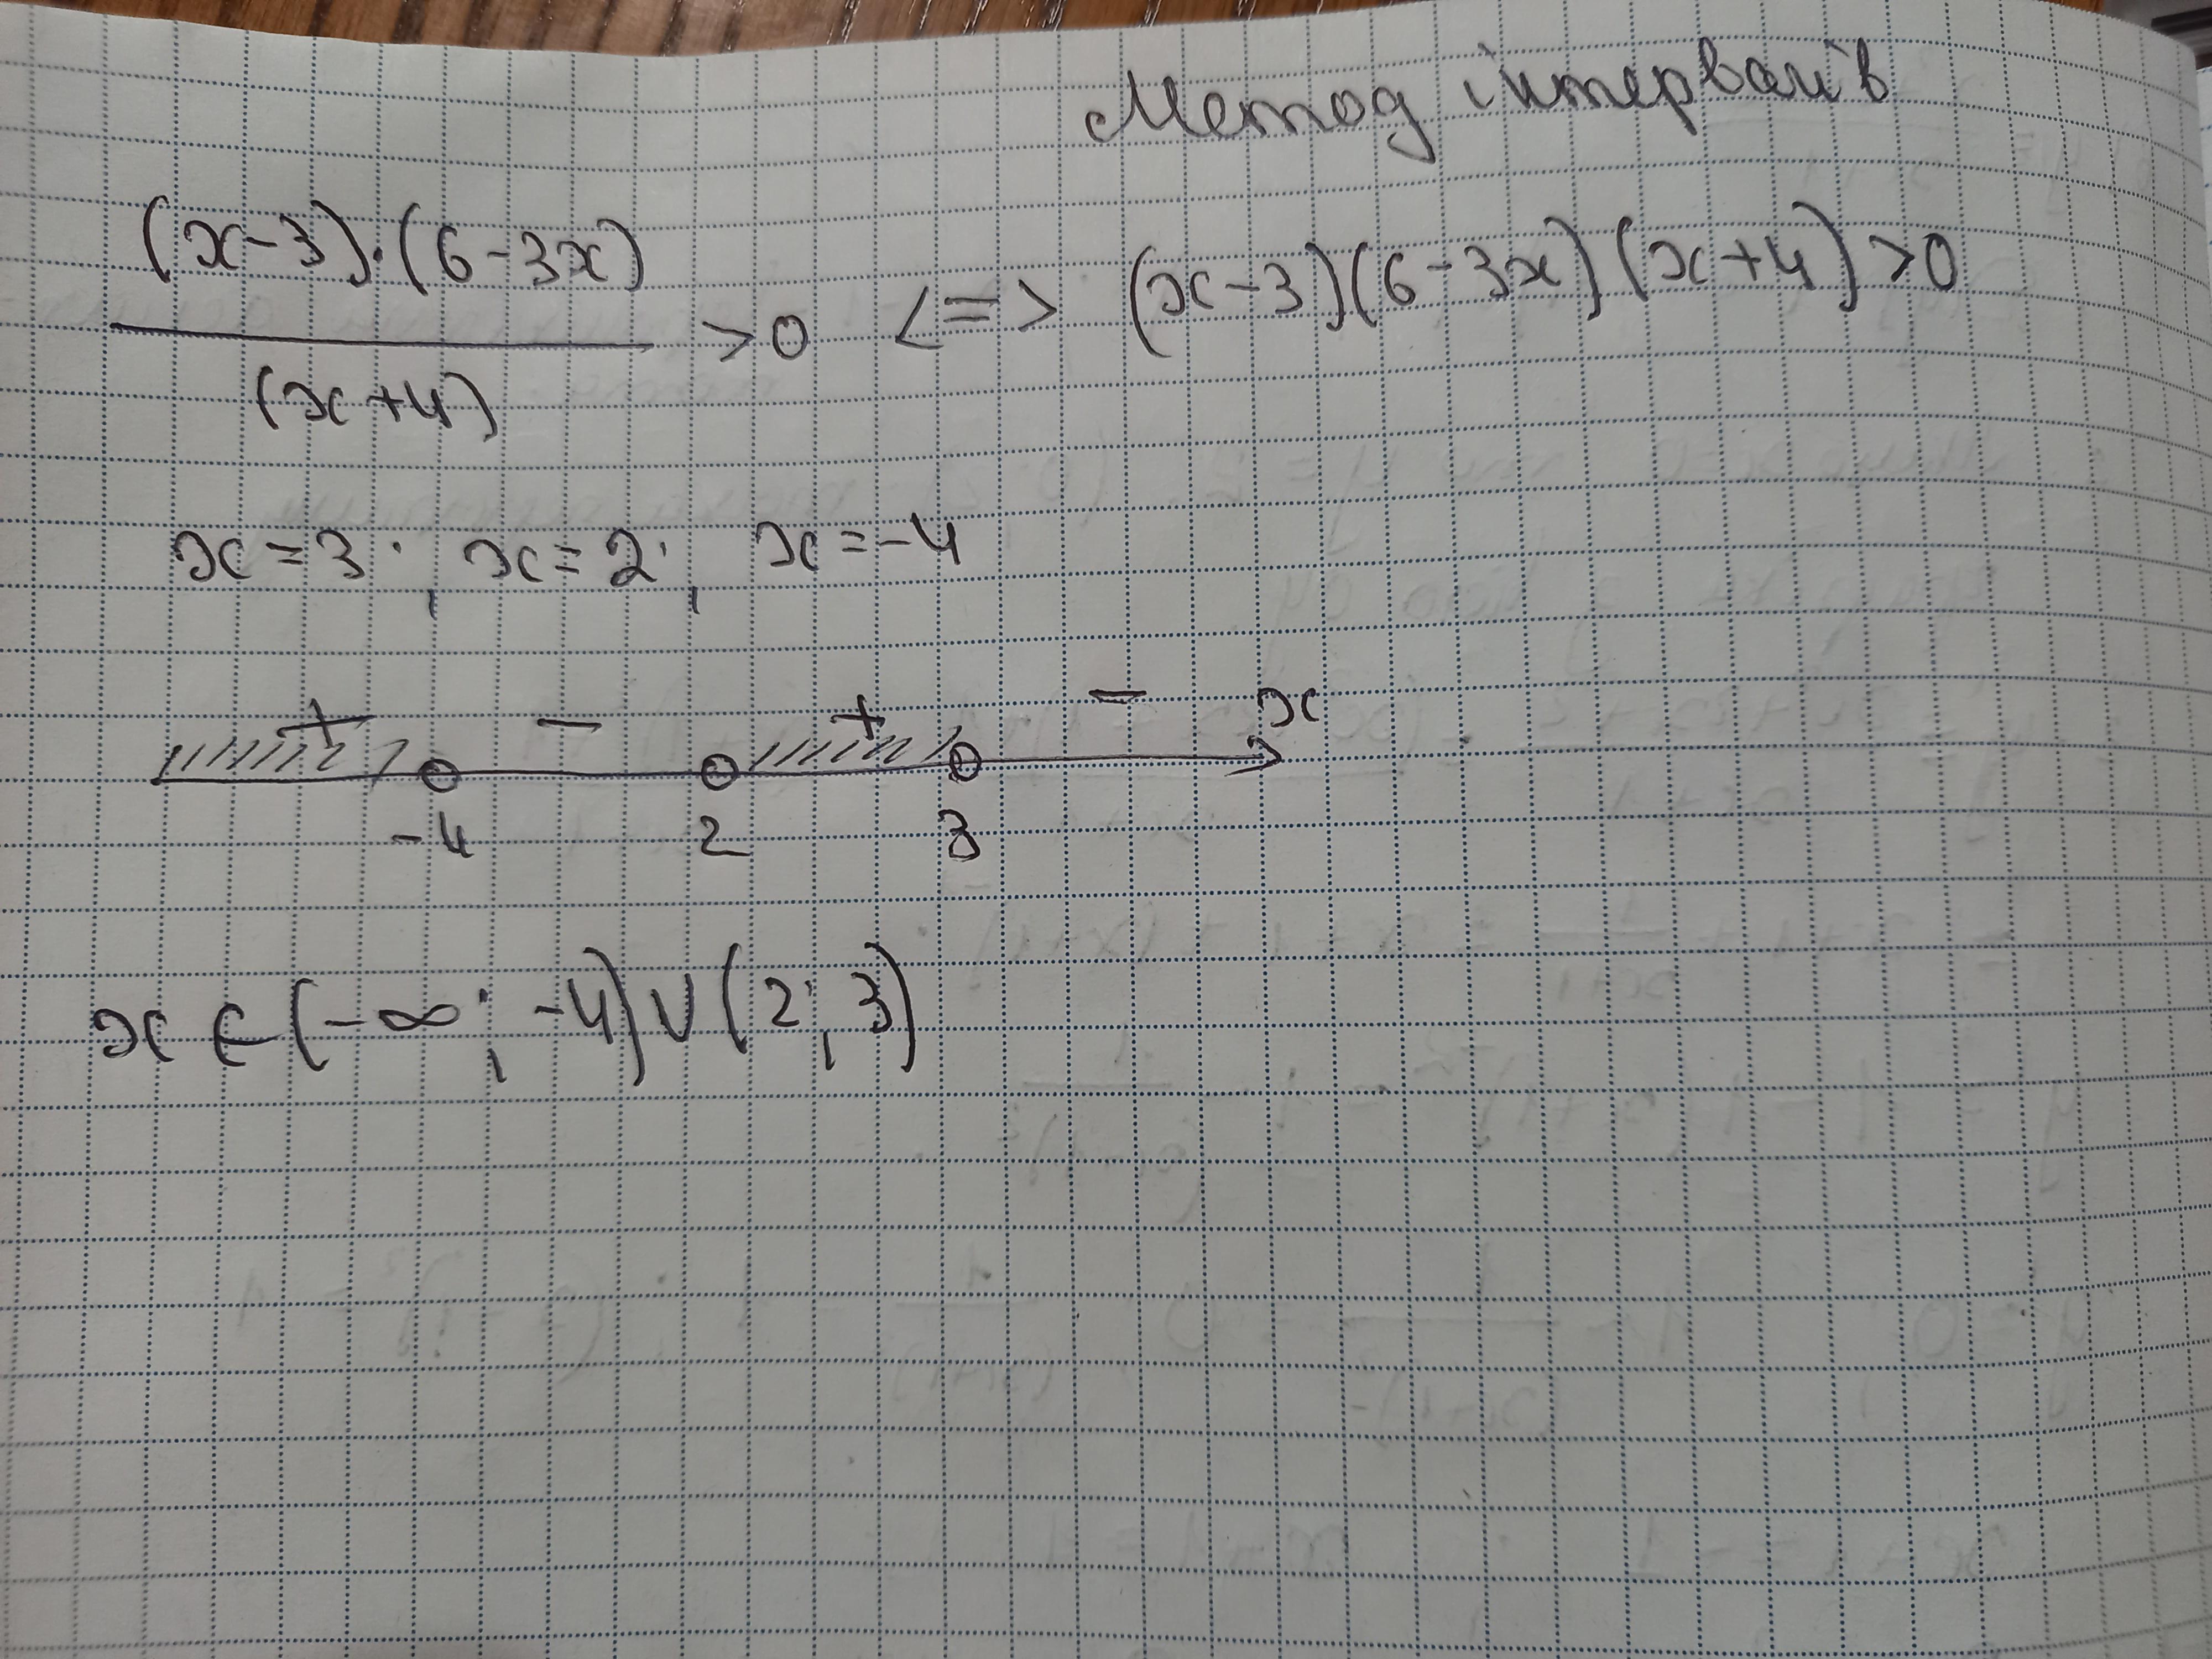 Метод інтервалів
(x-3)·(6-3x)
/(x+4) >0 <=> (x-3)(6-3x)(x+4)>0
x=3; x=2; x=-4
+ - + - x
-4 2 3
x∈(-∞;-4)∪(2;3)